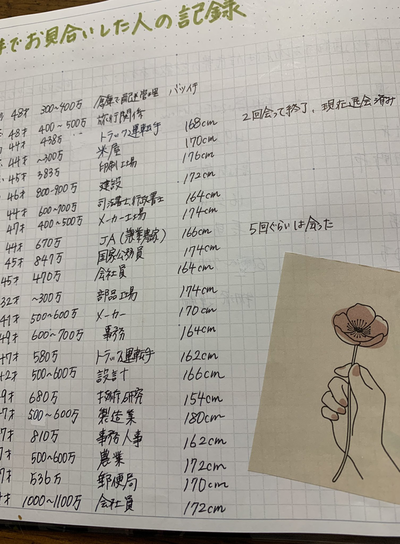 でお見合いした人の記録
48才 300~400万 倉庫で配送管理 バツイチ
48才 400~500万 旅行関係 168cm 2回会って終了、現在退会済み
44才 438万 トラック運転手 170cm
44才 ~300万 米屋 176cm
45才 383万 印刷工場 172cm
46才 800~900万 建設 164cm
44才 600~700万 司法書士、行政書士 174cm
47才 400~500万 メーカー工場 166cm 5回ぐらいは会った
44才 670万 JA(兼業農家) 174cm
45才 847万 国家公務員 164cm
45才 470万 会社員 174cm
32才 ~300万 部品工場 170cm
41才 500~600万 メーカー 164cm
49才 600~700万 事務 162cm
47才 580万 トラック運転手 166cm
42才 500~600万 設計 154cm
9才 680万 技術研究 180cm
7才 500~600万 製造業 162cm
7才 810万 事務人事 172cm
7才 500~600万 農業 170cm
7才 536万 郵便局 172cm
才 1000~1100万 会社員